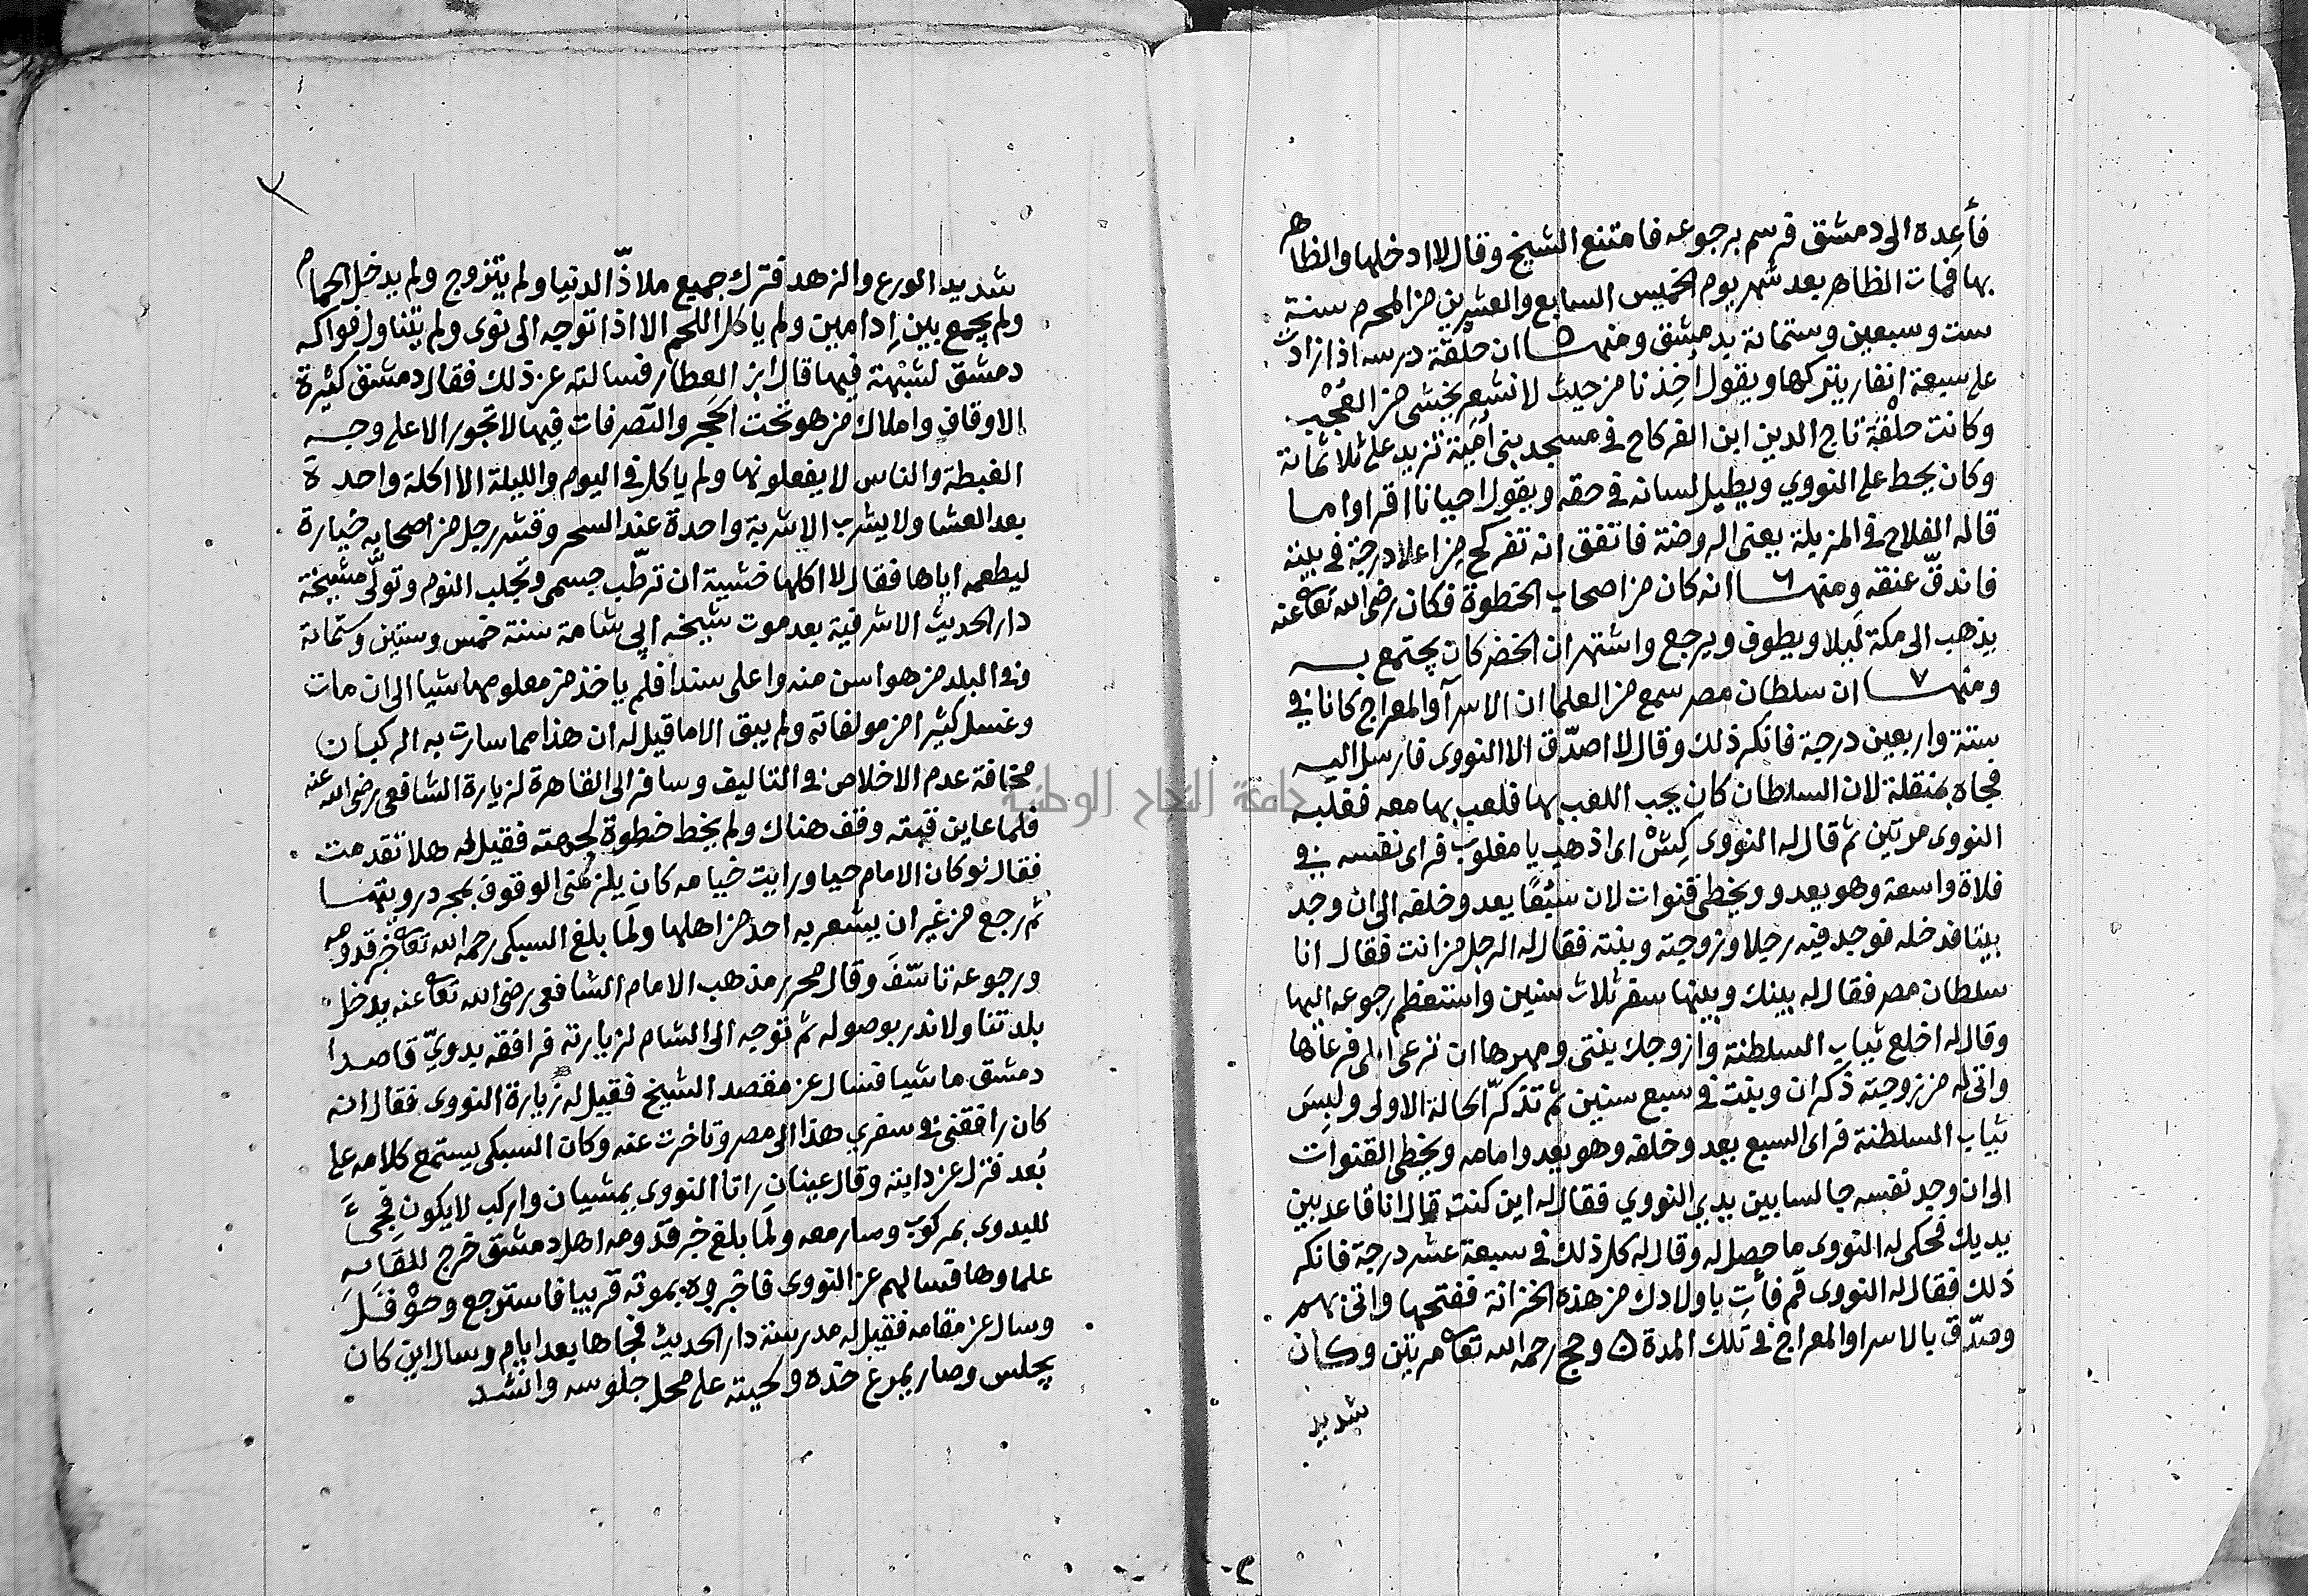 فأعده الى دمشق فرسم برجوعه فامتنع الشيخ وقال لا ادخلها والظاهر
بها فمات الظاهر بعد شهر يوم الخميس السابع والعشرين من المحرم سنة
ست وسبعين وستمائة بدمشق ومنها ٥ ان حلقة درسه اذا زادت
على سبعة انفار يتركها ويقول أخذنا من حيث لا نشعر نخشى من العُجْب
وكانت حلقة تاج الدين ابن الفركاح في مسجد بني أمية تزيد على ثلاثمائة
وكان يحط على النووي ويطيل لسانه في حقه ويقول احيانا اقراوا ما
قاله الفلاح في المزبلة يعني الروضة فاتفق انه تفركح من اعلا درجة في بيته
فاندقّ عنقه ومنها ٦ انه كان من اصحاب الخطوة فكان رضى الله تعا عنه
يذهب الى مكة ليلا ويطوف ويرجع واشتهر ان الخضر كان يجتمع به
ومنها ٧ ان سلطان مصر سمع من العلما ان الاسرآ والمعراج كانا في
ستة واربعين درجة فانكر ذلك وقال لا اصدّق الا النووى فارسل اليه
فجاه بمنقلة لان السلطان كان يحب اللعب بها فلعب بها معه فغلبه
النووى مرتين ثم قال له النووى كِشْ اى اذهب يا مغلوب فراى نفسه في
فلاة واسعة وهو يعدو ويخطى قنوات لان سَبُعًا يعدو خلفه الى ان وجد
بيتا فدخله فوجد فيه رجلا وزوجته وبنته فقال له الرجل من انت فقال انا
سلطان مصر فقال له بينك وبينها سفر ثلاث سنين واستعظم رجوعه اليها
وقال له اخلع ثياب السلطنة وأزوجك بنتى ومهرها ان ترعى ابلى فرعاها
واتى له من زوجته ذكران وبنت في سبع سنين ثم تذكّر الحالة الاولى ولبِسَ
ثياب السلطنة فراى السبع يعدو خلفه وهو يعدو امامه ويخطى القنوات
الى ان وجد نفسه جالسا بين يدي النووي فقال له اين كنت قال انا قاعد بين
يديك فحكى له النووى ما حصل له وقال له كل ذلك في سبعة عشر درجة فانكر
ذلك فقال له النووى قم فأتِ باولادك من هذه الخزانة ففتحها واتى بهم
وصدّق بالاسرا والمعراج في تلك المدة ٥ وحج رحمه الله تعا مرتين وكان
شديد
شديد الورع والزهد فترك جميع ملاذّ الدنيا ولم يتزوج ولم يدخل الحمام
ولم يجمع بين إدامين ولم ياكل اللحم الا اذا توجه الى نوى ولم يتناول فواكه
دمشق لشبْهة فيها قال ابن العطار فسالته عن ذلك فقال دمشق كثيرة
الاوقاف واملاك من هو تحت الحَجر والتصرفات فيها لا تجوز الا على وجه
الغبطة والناس لا يفعلونها ولم ياكل في اليوم والليلة الا اكلة واحدة
بعد العشا ولا يشرب الا شربة واحدة عند السحر وقشر رجل من اصحابه خيارة
ليطعمه اياها فقال لا اكلها خشية ان ترطّب جسمى وتجلب النوم وتولّى مشيخة
دار الحديث الاشرفية بعد موت شيخه ابي شامة سنة خمس وستين وستمائة
وفي البلد من هو اسن منه واعلى سندا فلم ياخذ من معلومها شيا الى ان مات
وغسل كثيرا من مولفاته ولم يبق الا ما قيل له ان هذا مما سارت به الركبان
مخافة عدم الاخلاص في التاليف وسافر الى القاهرة لزيارة الشافعى رضى الله عنه
فلما عاين قبته وقف هناك ولم يخط خطوة لجهته فقيل له هلا تقدمت
فقال لو كان الامام حيا ورايت خيامه كان يلزمنى الوقوف بمجرد رويتها
ثم رجع من غير ان يشعر به احد من اهلها ولما بلغ السبكى رحمه الله تعا خبر قدومه
ورجوعه تاسّفَ وقال محرر مذهب الامام الشافعى رضى الله تعا عنه يدخل
بلدتنا ولا ندر بوصوله ثم توجه الى الشام لزيارته فرافقه بدويّ قاصدا
دمشق ماشيا فسال عن مقصد الشيخ فقيل له زيارة النووى فقال انه
كان رافقنى في سفري هذا الى مصر وتاخرت عنه وكان السبكى يستمع كلامه على
بُعد فنزل عن دابته وقال عينان راتا النووى يمشيان واركب لا يكون فجئ
للبدوى بمركوب وسار معه ولما بلغ خبر قدومه اهل دمشق خرج للقايه
علماوها فسالهم عن النووى فاخبروه بموته قريبا فاسترجع وحوْقَلَ
وسال عن مقامه فقيل له مدرسة دار الحديث فجاها بعد ايام وسال اين كان
يجلس وصار يمرغ خدّه ولحيته على محل جلوسه وانشد
جامعة النجاح الوطنية